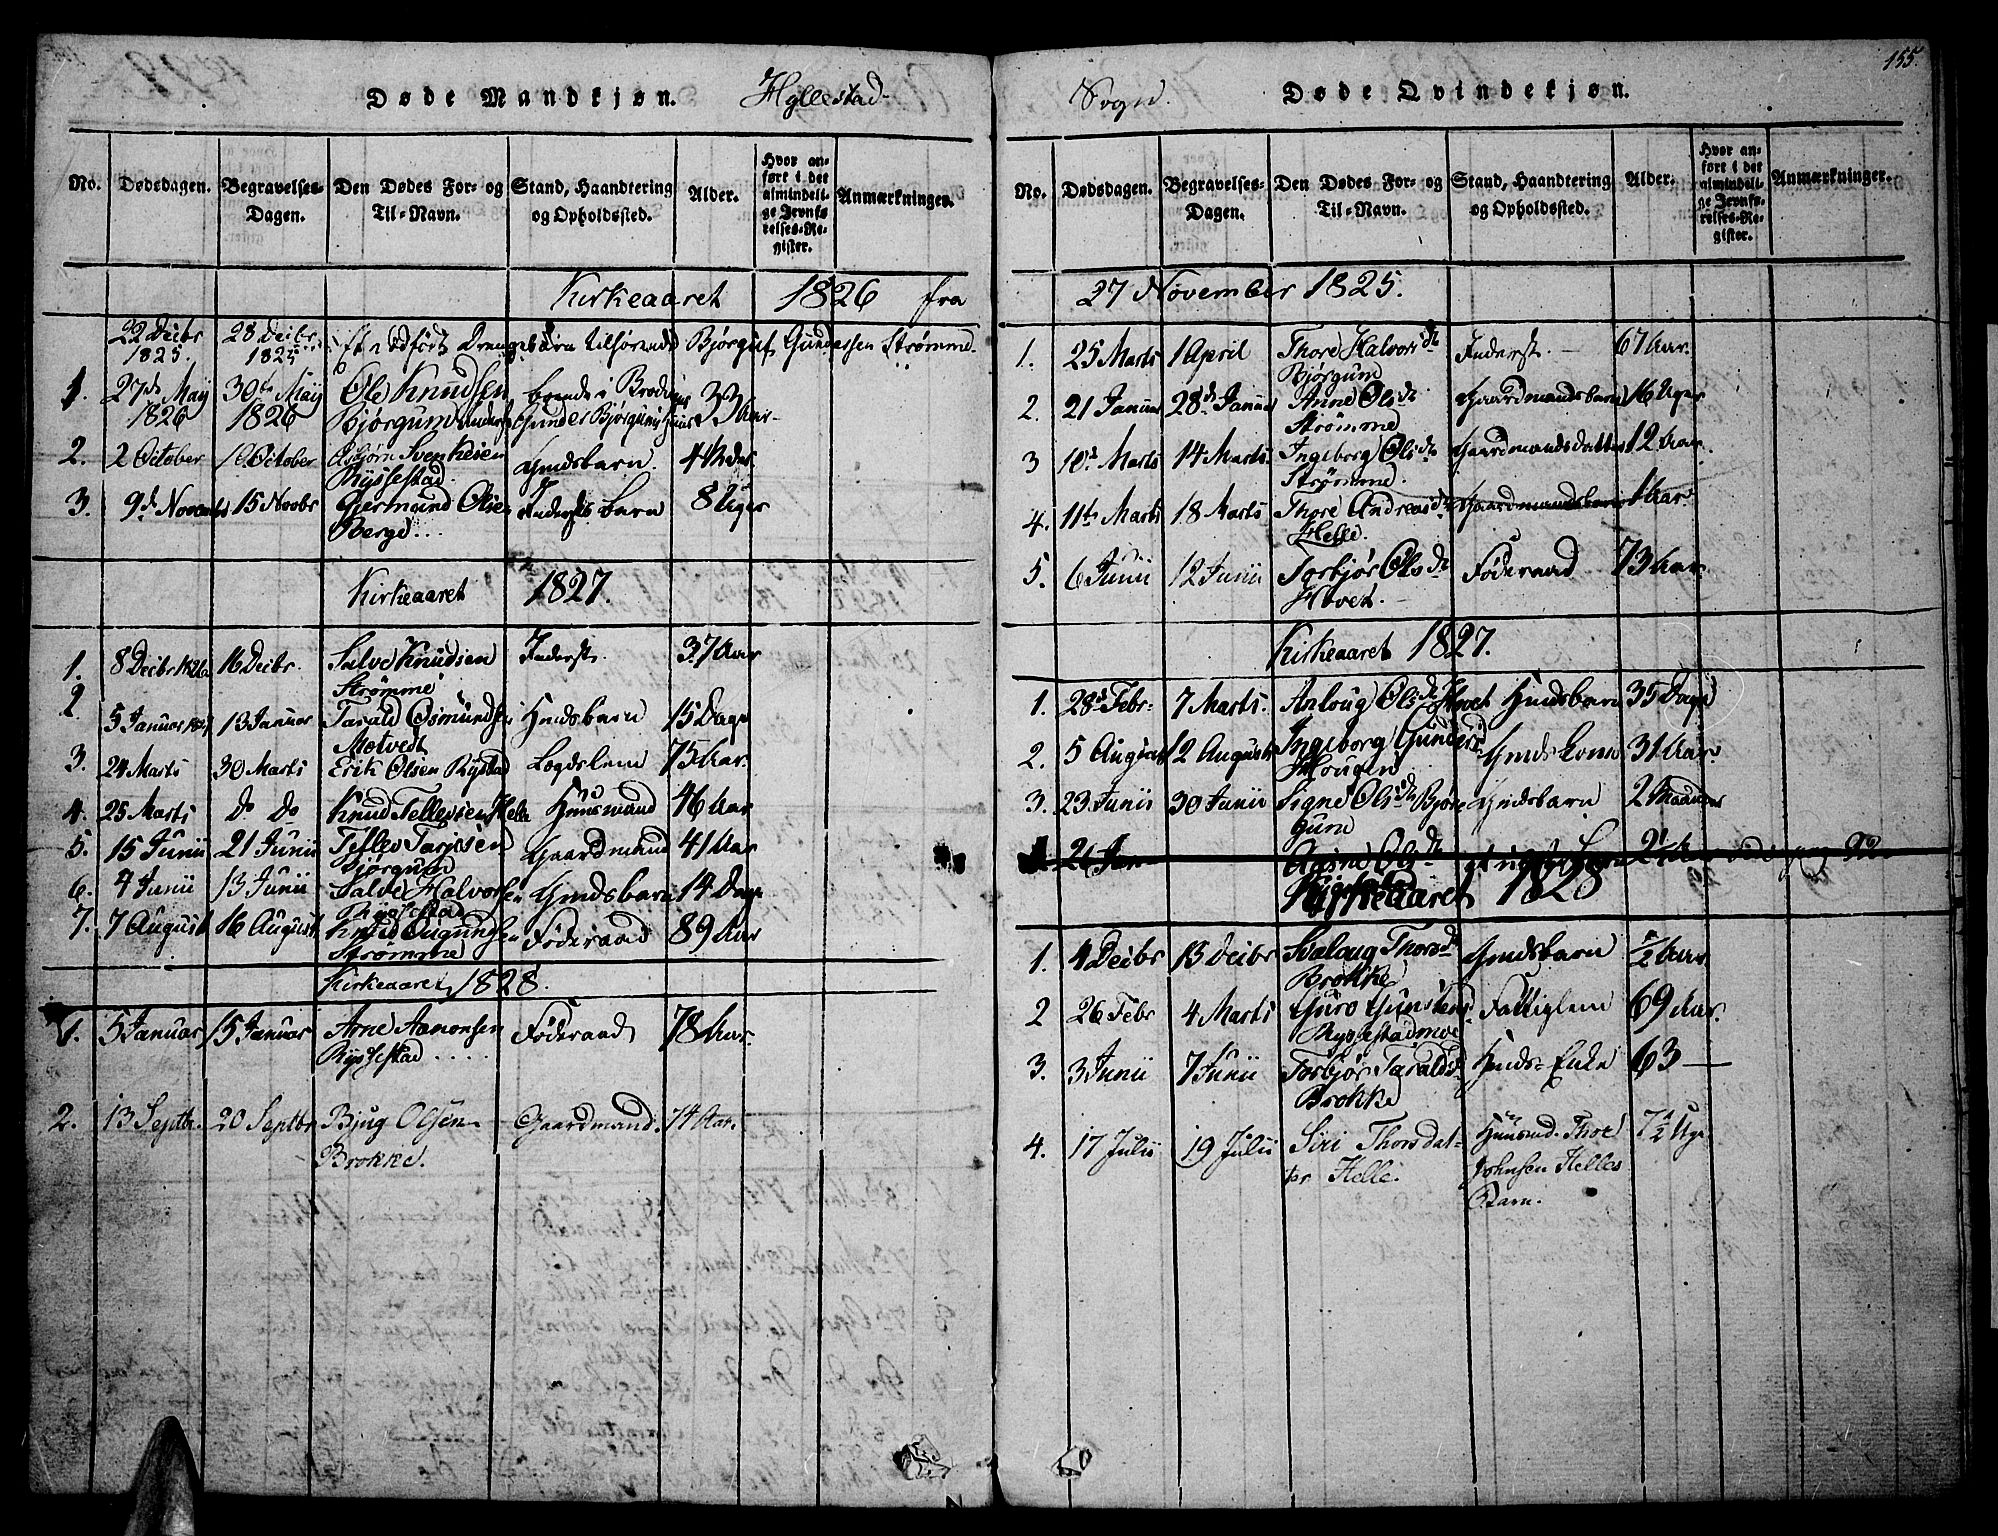 155.
Døde Mandkjøn. Hyllestad
No. Dødsdagen. Begravelses-Dagen. Den Dødes For- og Til-Navn. Stand, Haandtering og Opholdssted. Alder. Hvor anført i det almindelige Jevnførelses-Register. Anmærkninger.
Kirkeaaret 1826 fra
22 Decbr 1825. 28 Decbr 1825 Et Drengebarn Bjørguf Gundersen Strømme
1. 27de May 1826 30te May 1826 Ole Knudsen Bjørgum 33 Aar
2. 2 October 10 October Asbjørn Svenkesen Ryssestad Gmdsbarn. 4 
3. 9de Novembr 15 Novbr Gjermund Olsen Berge... Inderstb. barn 8 Uger
Kirkeaaret 1827.
1. 8 Decbr 1826 16 Decbr. Salve Knudsen Strømme Inderst. 37 Aar
2 5 Januar 1827 13 Januar Tarald Osmundsen Motvedt Hmdsbarn 15 Dage
3. 24 Marts 30 Marts Erik Olsen Rystad Lægdslem 75 Aar.
4. 25 Marts do do Knud Tellefsen Helle Huusmand 46 Aar
5. 15 Junii 21 Junii Tellev Tarjesen Bjørgum Gaardmand 41 Aar
6. 7 Junii 13 Junii Salve Halvorsen Ryssestad Gmdsbarn 14 Dage
7. 7 August 16 August. Knud Augundsen Strømme Føderaad 89 Aar
Kirkeaaret 1828.
1. 5 Januar 15 Januar Arne Aanonsen Ryssestad.... Føderaad 78 Aar.
2. 13 Septbr. 20 Septbr Bjug Olsen Brokke. Gaardmand. 74 Aar.
Sogn. Døde Qvindekjøn.
No. Dødsdagen. Begravelses-Dagen. Den Dødes For- og Til-Navn. Stand, Haandtering og Opholdssted. Alder. Hvor anført i det almindelige Jevnførelses-Register. Anmærkninger.
27 November 1825.
1. 25 Marts 1 April Thore Halvorsdtr Bjørgum Inderst. 67 Aar.
2. 21 Januar 28de Januar Anne Olsdtr Strømme Gaardmandsbarn 16 Uger
3 10de Marts 14 Marts. Ingeborg Olsdtr Strømme. Gaardmandsdatter 12 Aar.
4. 11te Marts 18 Marts. Thore Andreasdtr Helle. Gaardmandsbarn 1 Aar.
5. 6 Junii 12 Junii Torbjør Olsdtr Hovet. Føderaad 73 Aar.
Kirkeaaret 1827.
1. 28de Febr. 7 Marts. Anloug Olsdtr Hovet Hmdsbarn 35 Dage
2. 5 August 12 August Ingeborg Gundersd. Hougen Gmds Kone 31 Aar
3. 23 Junii 30 Junii Signe Olsdtr Bjørgum Gmdsbarn 2 Maaneder
21 Jan Olsdtr
Kirkeaaret 1828
1. 4 Decbr 13 Decbr Svaloug Thorsdtr Brokke Gmdsbarn 1/2 Aar.
2 26 Febr 4 Marts Guro Gunstensd. Ryssestadmoe Fattiglem 69 Aar.
3. 3 Junii 7 Junii Torbjør Taraldsd. Brokke Hmds-Enke 63 —
4. 17 Julii 19 Julii Siri Thorsdatter Helle. Huusmd. Thor Johnsen Helles Barn. 7 1/2 Uge